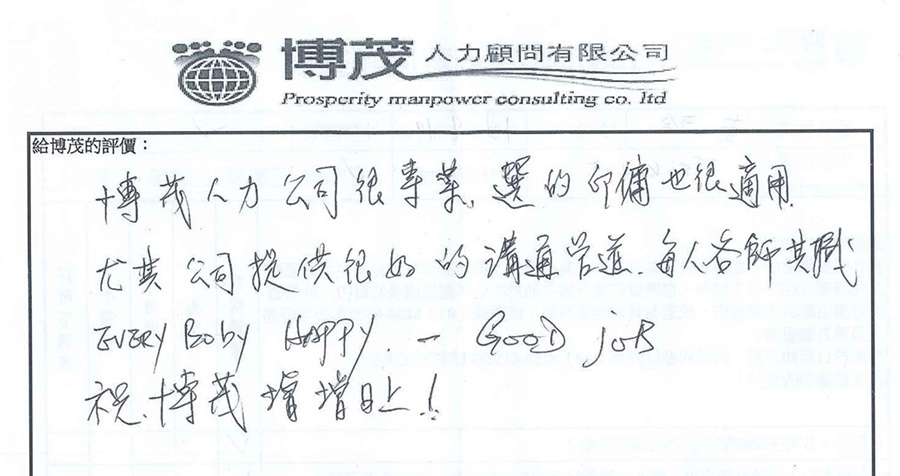 博茂人力顧問有限公司
Prosperity manpower consulting co. ltd
給博茂的評價：
博茂人力公司很專業，選的印傭也很適用
尤其公司提供很好的溝通管道，每人各師其職
EVERY BoDy HAPPY — GOOD JoB
祝，博茂增增日上！